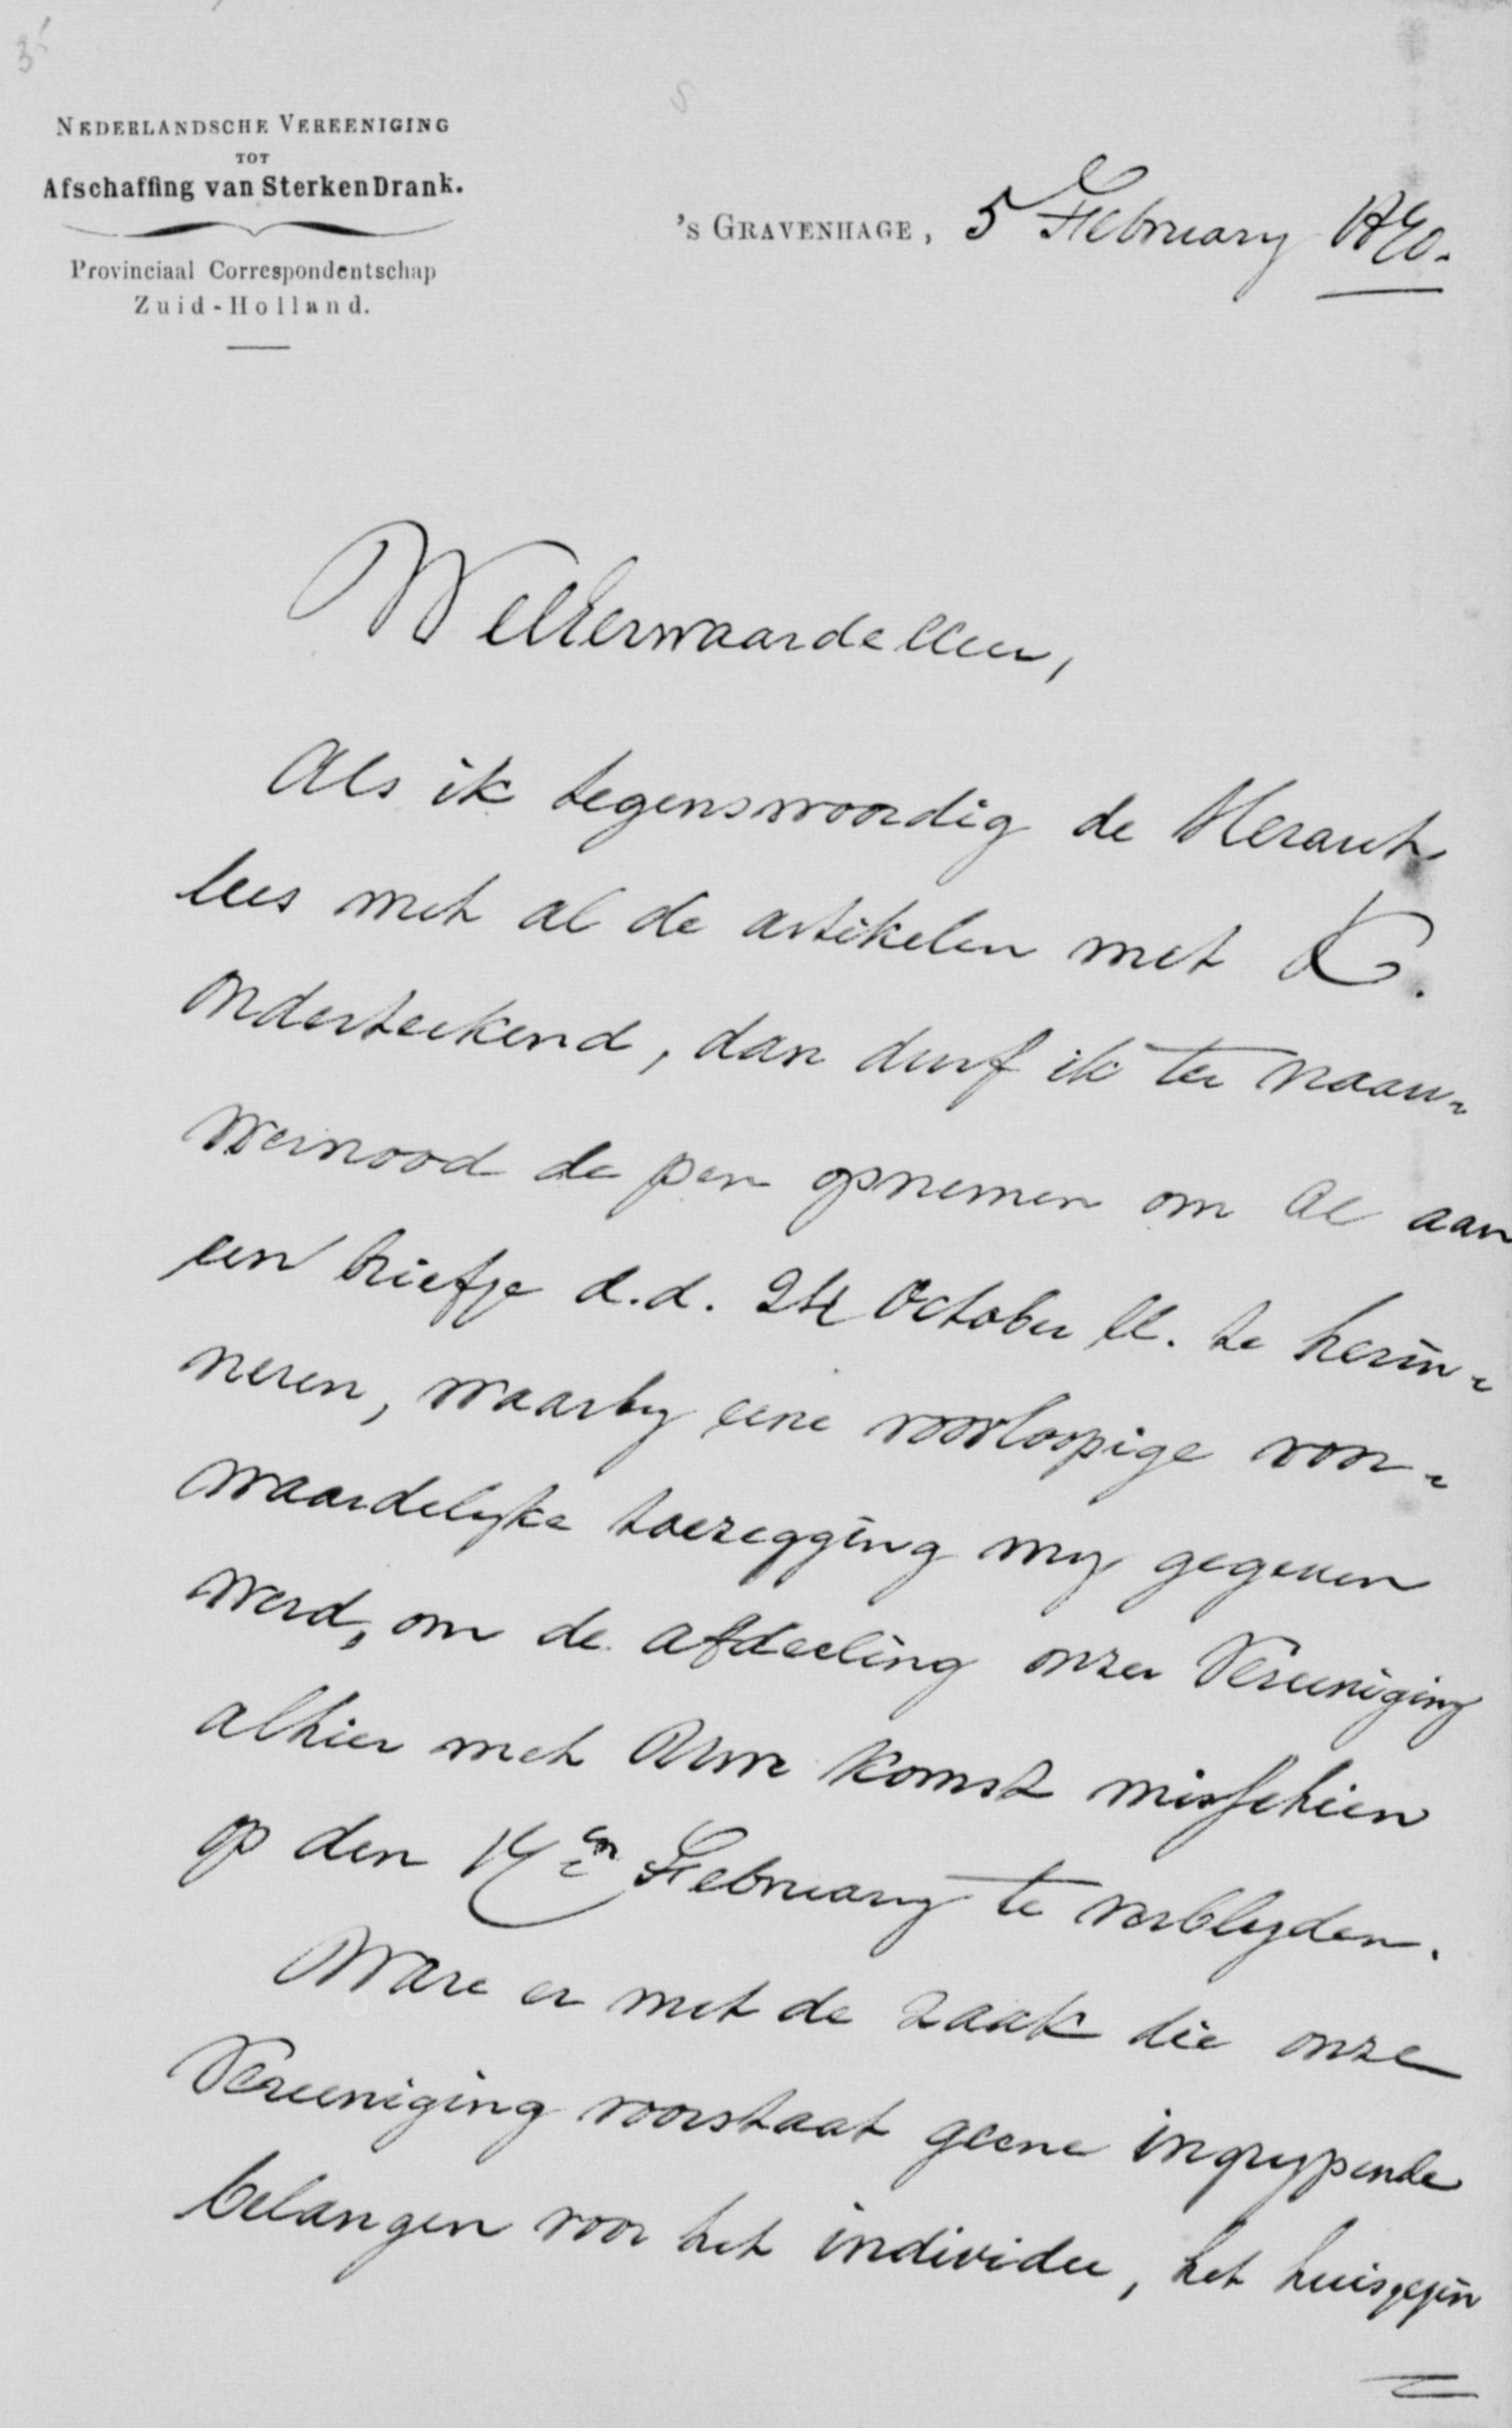 NEDERLANDSCHE VEREENIGING
TOT
Afschaffing van Sterken Drank.
Provinciaal Correspondentschap
Zuid-Holland.
's GRAVENHAGE, 5 February 1870.
WelEerwaarde Heer,
Als ik tegenswoordig de Heraut
lees met al de artikelen met K.
onderteekend, dan durf ik ter naau-
wernood de pen opnemen om UE aan
een briefje d.d. 24 October ll. te herin-
neren, waarby eene voorloopige voor-
waardelyke toezegging my gegeven
werd, om de afdeeling onzer Vereeniging
alhier met Uwe komst misschien
op den 14en February te verblyden.
Ware er met de zaak die onze
Vereeniging voorstaat geene ingrypende
belangen voor het individu, het huisgezin